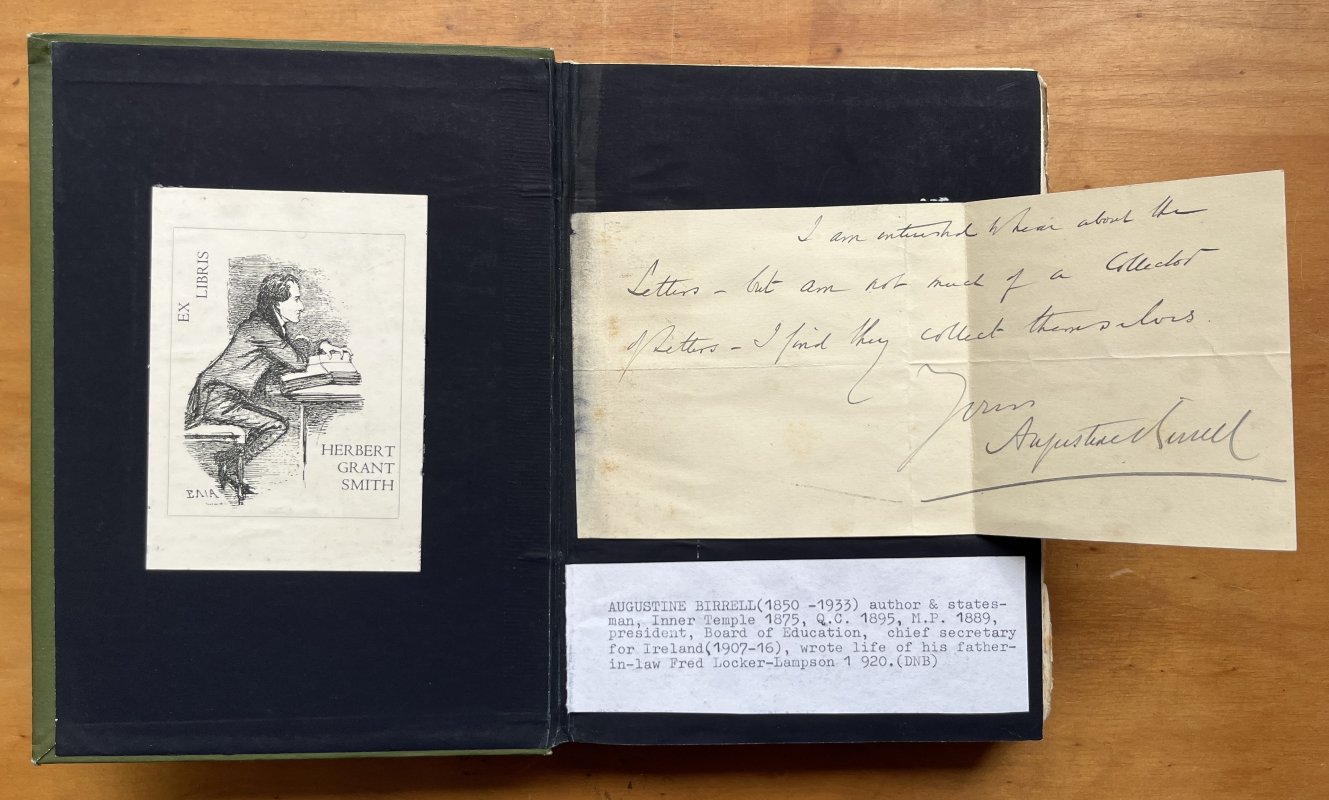 EX
LIBRIS
HERBERT
GRANT
SMITH
I am interested to hear about the
Letters – but am not much of a Collector
of Letters – I find they collect themselves.
Yours
Augustine Birrell
AUGUSTINE BIRRELL(1850 -1933) author & states-
man, Inner Temple 1875, Q.C. 1895, M.P. 1889,
president, Board of Education, chief secretary
for Ireland(1907-16), wrote life of his father-
in-law Fred Locker-Lampson 1 920.(DNB)